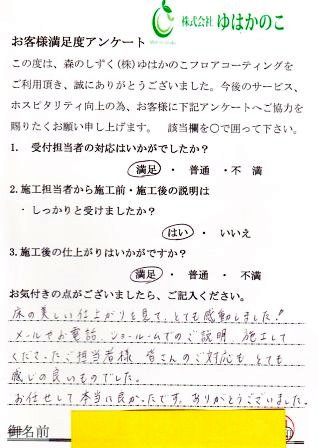 株式会社 ゆはかのこ
お客様満足度アンケート
この度は、森のしずく(株)ゆはかのこフロアコーティングを
ご利用頂き、誠にありがとうございました。今後のサービス、
ホスピタリティ向上の為、お客様に下記アンケートへご協力を
賜りたくお願い申し上げます。 該当欄を○で囲って下さい。
1. 受付担当者の対応はいかがでしたか?
満足 ・ 普通 ・不 満
2.施工担当者から施工前・施工後の説明は
・しっかりと受けましたか?
はい ・ いいえ
3.施工後の仕上がりはいかがですか?
満足 ・ 普通 ・ 不満
お気付きの点がございましたら、ご記入ください。
床の美しい仕上がりを見て、とても感動しました!
メールやお電話、ショールームでのご説明、施工して
くださったご担当者様、皆さんのご対応も、とても
感じの良いものでした。
お任せして本当に良かったです。ありがとうございました。
御名前